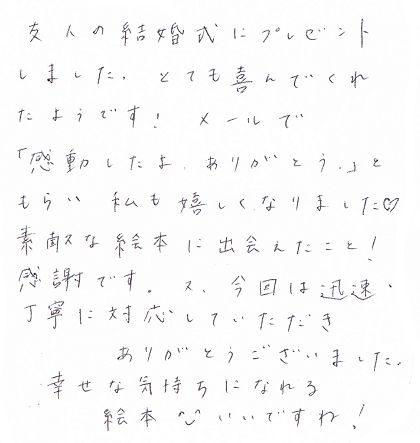 友人の結婚式にプレゼント
しました。とても喜んでくれ
たようです！ メールで
「感動したよ、ありがとう。」と
もらい 私も嬉しくなりました♡
素敵な絵本に出会えたこと！
感謝です。又、今回は迅速・
丁寧に対応していただき
ありがとうございました。
幸せな気持ちになれる
絵本 いいですね！